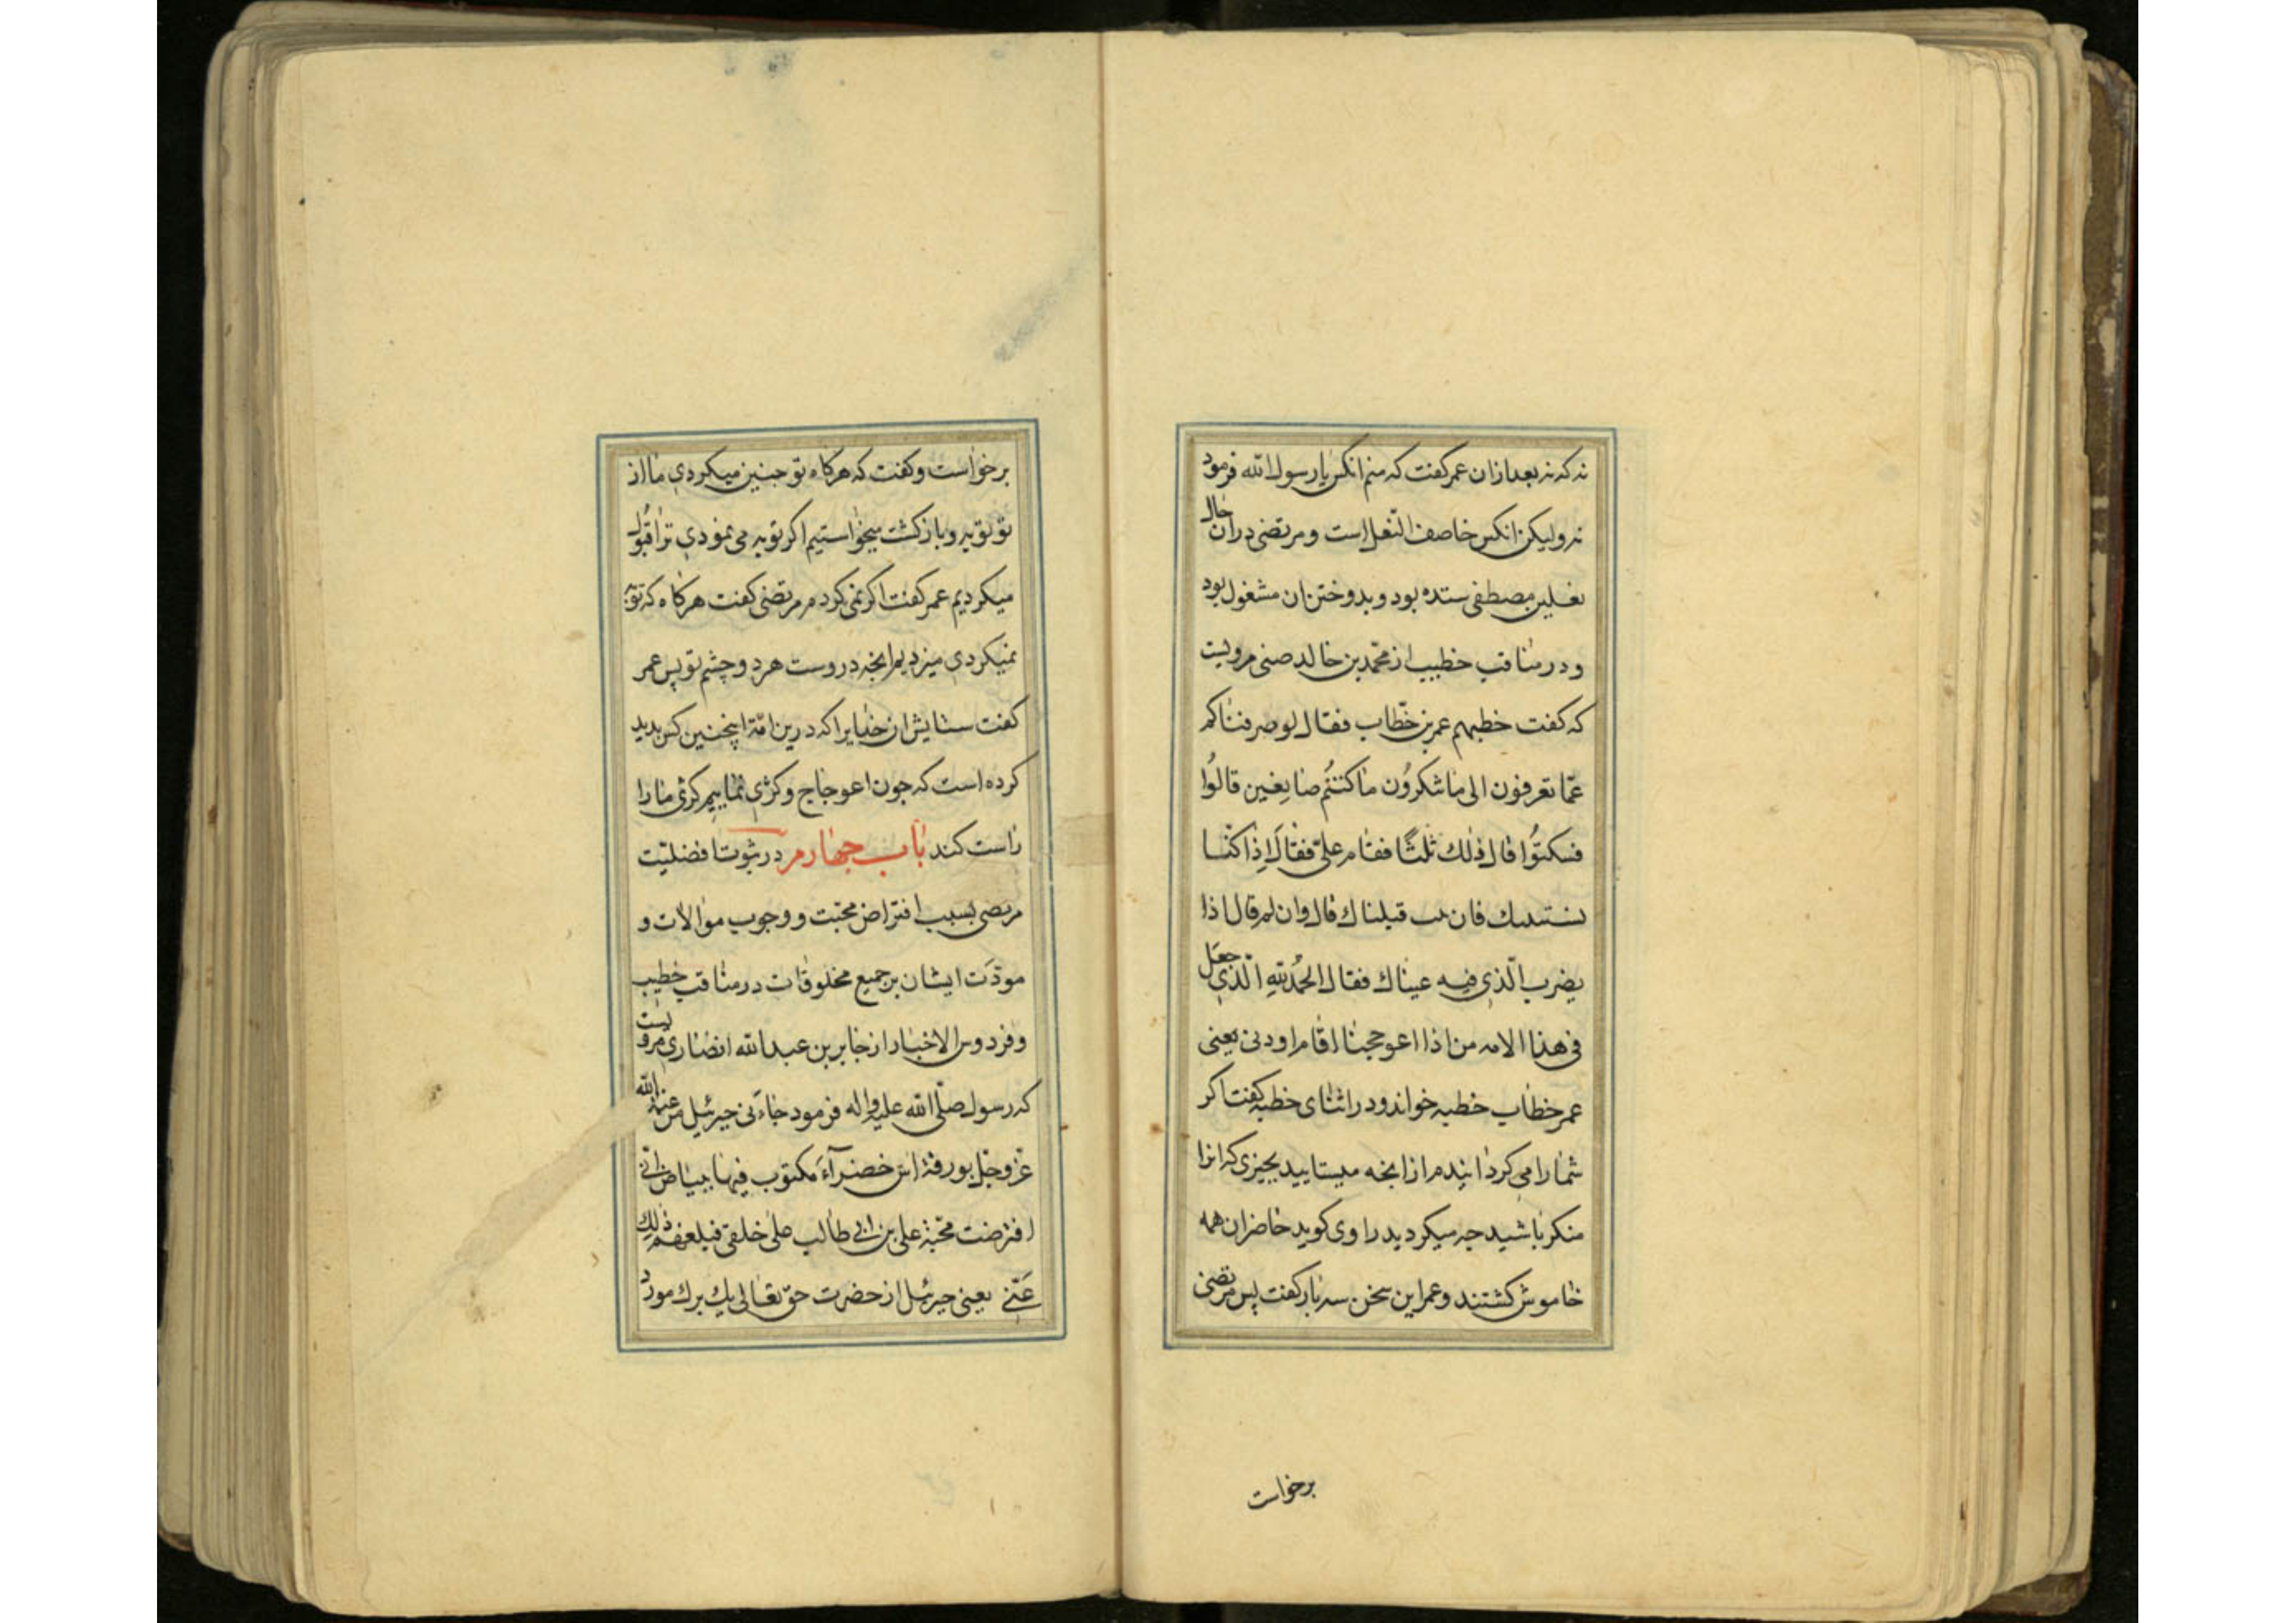 نه که نه بعد ازان عمر کفت که منم انکس یا رسول الله فرمود
نه ولیکن انکس خاصف النّعل است و مرتضی دران حال
نعلین مصطفی ستده بود و بدوختن ان مشغول بود
و در مناقب خطیب از محمّد بن خالد ضبی مرویست
که کفت خطبهم عمر بن خطّاب فقال لو صرفناکم
عمّا تعرفون الی ما تنکرُون ما کنتُم صانِعین قالُوا
فسکتُوا قال ذٰلك ثلٰثًا فقام علیّ فقال اِذا کنّا
نستتیبك فان تب قبلناك قال وان لم قال اذا
یضرب الّذی فیه عیناك فقال الحمدُ للهِ الّذی جعَل
فی هذا الامه من اذا اعوججنا اقام اودنی یعنی
عمر خطاب خطبه خواند و در اثنای خطبه کفت اکر
شما را می کردانیدم از انجه میستایید بجیزی که انرا
منکر باشید جه میکردید راوی کوید حاضران همه
خاموش کشتند و عمر این سخن سه بار کفت پس مرتضی
برخواست
برخواست و کفت که هرکاه تو جنین میکردی ما از
تو توبه و باز کشت میخواستیم اکر توبه می نمودی ترا قبول
میکردیم عمر کفت اکر نمی کردم مرتضی کفت هرکاه که توبه
نمیکردی میزدیم انجه دروست هر دو چشم تو پس عمر
کفت ستایش ان خدایرا که درین امّة اینجنین کس بدید
کرده است که جون اعوجاج و کژی نماییم کژی ما را
راست کند باب جهارم در ثبوت افضلیّت
مرتضی بسبب افتراض محبّت و وجوب موالات و
مودّت ایشان بر جمیع مخلوقات در مناقب خطیب
و فردوس الاخبار از جابر بن عبد الله انصاری مرویست
که رسول صلّی الله علیه واله فرمود جاءنی جبرئیل من عند الله
عزّ وجلّ بورقة اس خضرآءَ مکتوب فیها ببیاض انّی
افترضت محبّة علی بن ابی طالب علی خلقی فبلغهم ذٰلِك
عَنّی یعنی جبرئیل از حضرت حق تعالی یك برك مورد